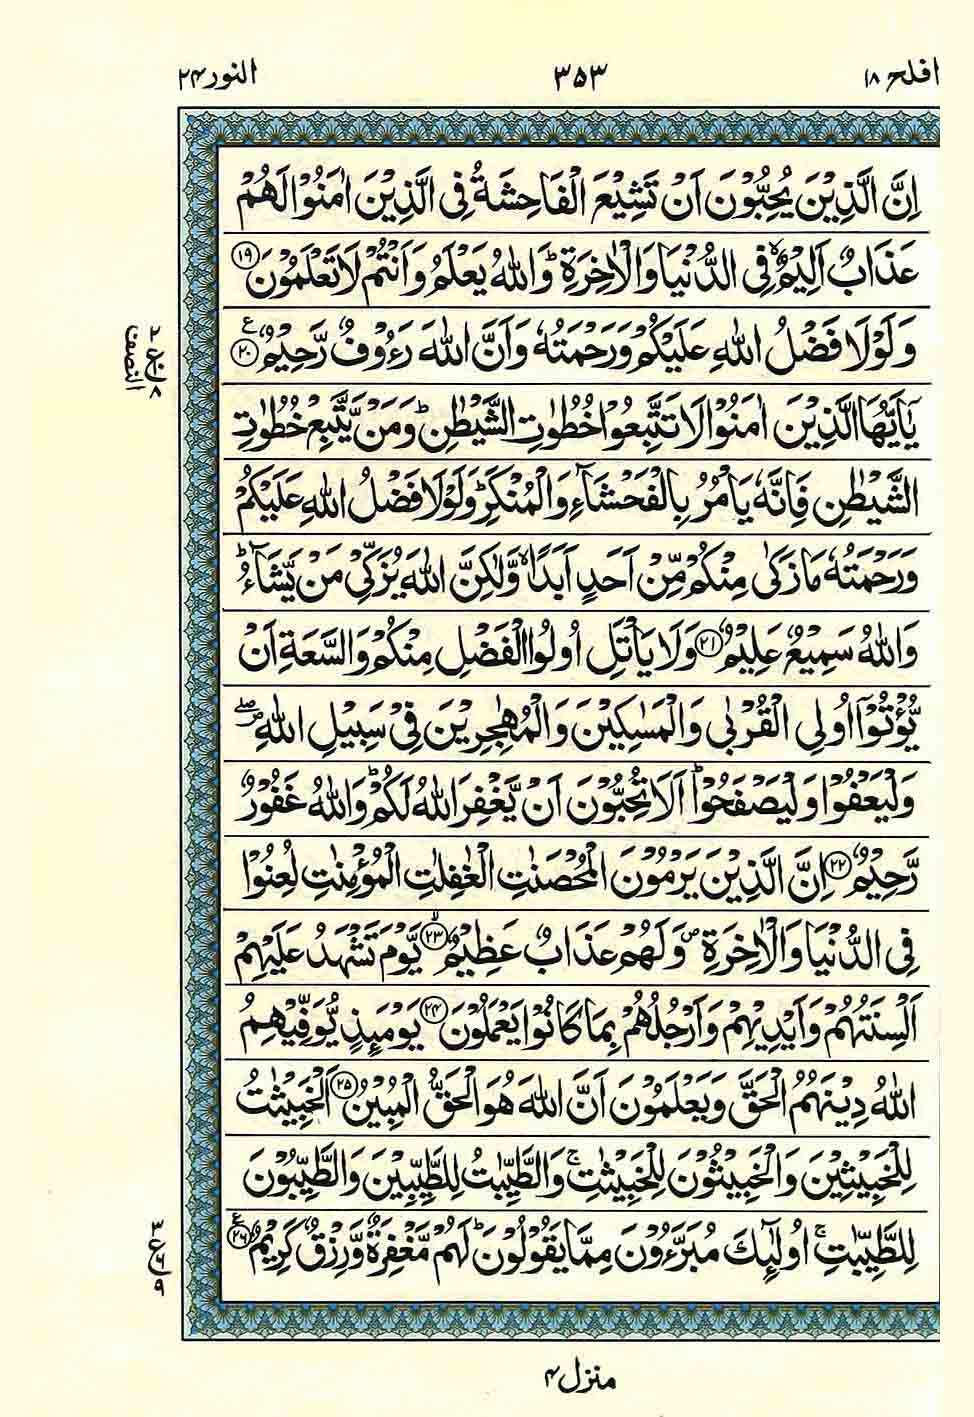 افلح ۱۸
۳۵۳
النور ۲۴
اِنَّ الَّذِيْنَ يُحِبُّوْنَ اَنْ تَشِيْعَ الْفَاحِشَةُ فِى الَّذِيْنَ اٰمَنُوْا لَهُمْ
عَذَابٌ اَلِيْمٌ ۙ فِى الدُّنْيَا وَالْاٰخِرَةِ ؕ وَاللّٰهُ يَعْلَمُ وَاَنْتُمْ لَا تَعْلَمُوْنَ ۱۹
وَلَوْلَا فَضْلُ اللّٰهِ عَلَيْكُمْ وَرَحْمَتُهٗ وَاَنَّ اللّٰهَ رَءُوْفٌ رَّحِيْمٌ ۲۰ ع
۲ ع ۱۰ ۸
النصف
يٰۤاَيُّهَا الَّذِيْنَ اٰمَنُوْا لَا تَتَّبِعُوْا خُطُوٰتِ الشَّيْطٰنِ ؕ وَمَنْ يَّتَّبِعْ خُطُوٰتِ
الشَّيْطٰنِ فَاِنَّهٗ يَاْمُرُ بِالْفَحْشَآءِ وَالْمُنْكَرِ ؕ وَلَوْلَا فَضْلُ اللّٰهِ عَلَيْكُمْ
وَرَحْمَتُهٗ مَا زَكٰى مِنْكُمْ مِّنْ اَحَدٍ اَبَدًا ۙ وَّلٰكِنَّ اللّٰهَ يُزَكِّىْ مَنْ يَّشَآءُ ؕ
وَاللّٰهُ سَمِيْعٌ عَلِيْمٌ ۲۱ وَلَا يَاْتَلِ اُولُوا الْفَضْلِ مِنْكُمْ وَالسَّعَةِ اَنْ
يُّؤْتُوْۤا اُولِى الْقُرْبٰى وَالْمَسٰكِيْنَ وَالْمُهٰجِرِيْنَ فِىْ سَبِيْلِ اللّٰهِ ۖ
وَلْيَعْفُوْا وَلْيَصْفَحُوْا ؕ اَلَا تُحِبُّوْنَ اَنْ يَّغْفِرَ اللّٰهُ لَكُمْ ؕ وَاللّٰهُ غَفُوْرٌ
رَّحِيْمٌ ۲۲ اِنَّ الَّذِيْنَ يَرْمُوْنَ الْمُحْصَنٰتِ الْغٰفِلٰتِ الْمُؤْمِنٰتِ لُعِنُوْا
فِى الدُّنْيَا وَالْاٰخِرَةِ ص وَلَهُمْ عَذَابٌ عَظِيْمٌ ۲۳ ۙ يَّوْمَ تَشْهَدُ عَلَيْهِمْ
اَلْسِنَتُهُمْ وَاَيْدِيْهِمْ وَاَرْجُلُهُمْ بِمَا كَانُوْا يَعْمَلُوْنَ ۲۴ يَوْمَئِذٍ يُّوَفِّيْهِمُ
اللّٰهُ دِيْنَهُمُ الْحَقَّ وَيَعْلَمُوْنَ اَنَّ اللّٰهَ هُوَ الْحَقُّ الْمُبِيْنُ ۲۵ اَلْخَبِيْثٰتُ
لِلْخَبِيْثِيْنَ وَالْخَبِيْثُوْنَ لِلْخَبِيْثٰتِ ۚ وَالطَّيِّبٰتُ لِلطَّيِّبِيْنَ وَالطَّيِّبُوْنَ
لِلطَّيِّبٰتِ ۚ اُولٰٓئِكَ مُبَرَّءُوْنَ مِمَّا يَقُوْلُوْنَ ؕ لَهُمْ مَّغْفِرَةٌ وَّرِزْقٌ كَرِيْمٌ ۲۶ ع
۳ ع ۶ ۹
منزل ۴